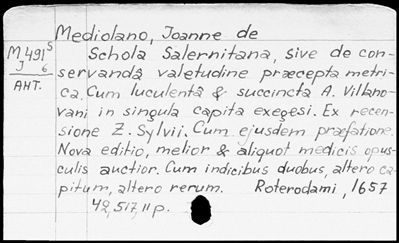 Mediolano, Joanne de
M.491 5
J 6
AHT.
Schola Salernitana, sive de con-
servandâ valetudine præcepta metri-
ca. Cum luculentâ & succincta A. Villano-
vani in singula capita exegesi. Ex recen-
sione Z. Sylvii. Cum ejusdem præfatione.
Nova editio, melior & aliquot medicis opus-
culis auctior. Cum indicibus duobus, altero ca-
pitum, altero rerum. Roterodami, 1657
42, 517, 11 p.